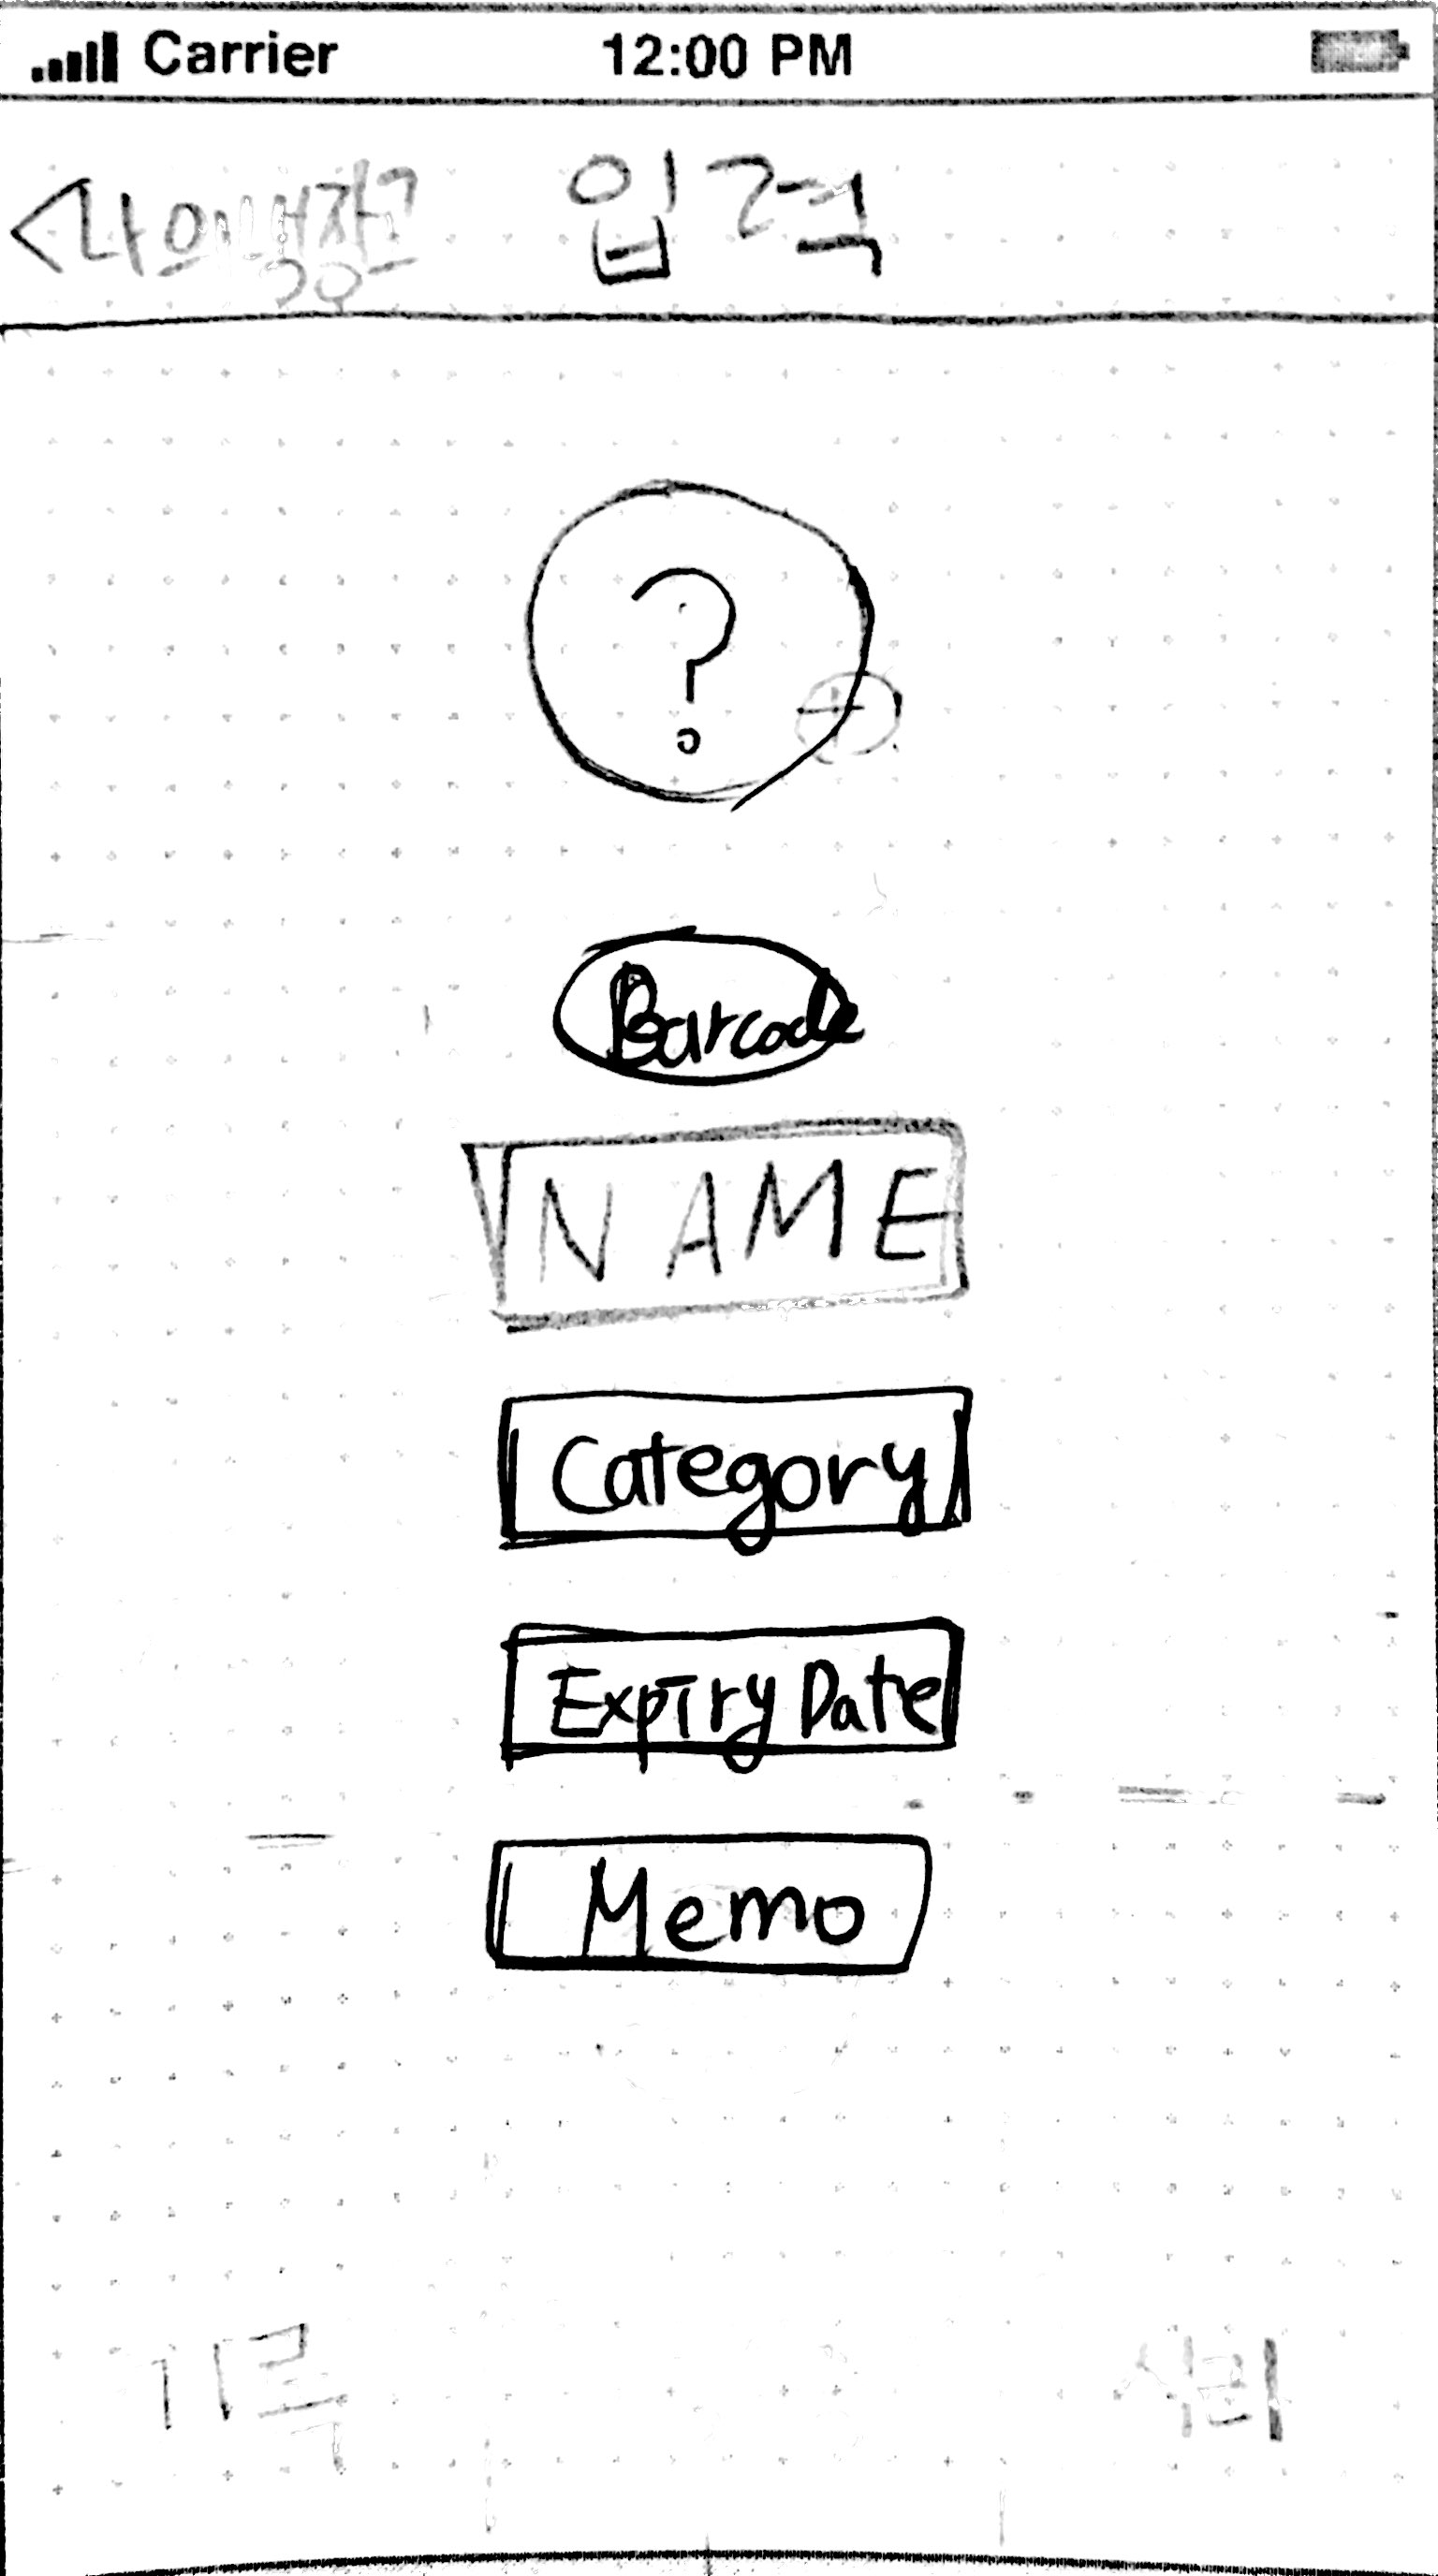 Carrier 12:00 PM
<나의냉장고 입력
?
+
Barcode
NAME
Category
Expiry Date
Memo
기록